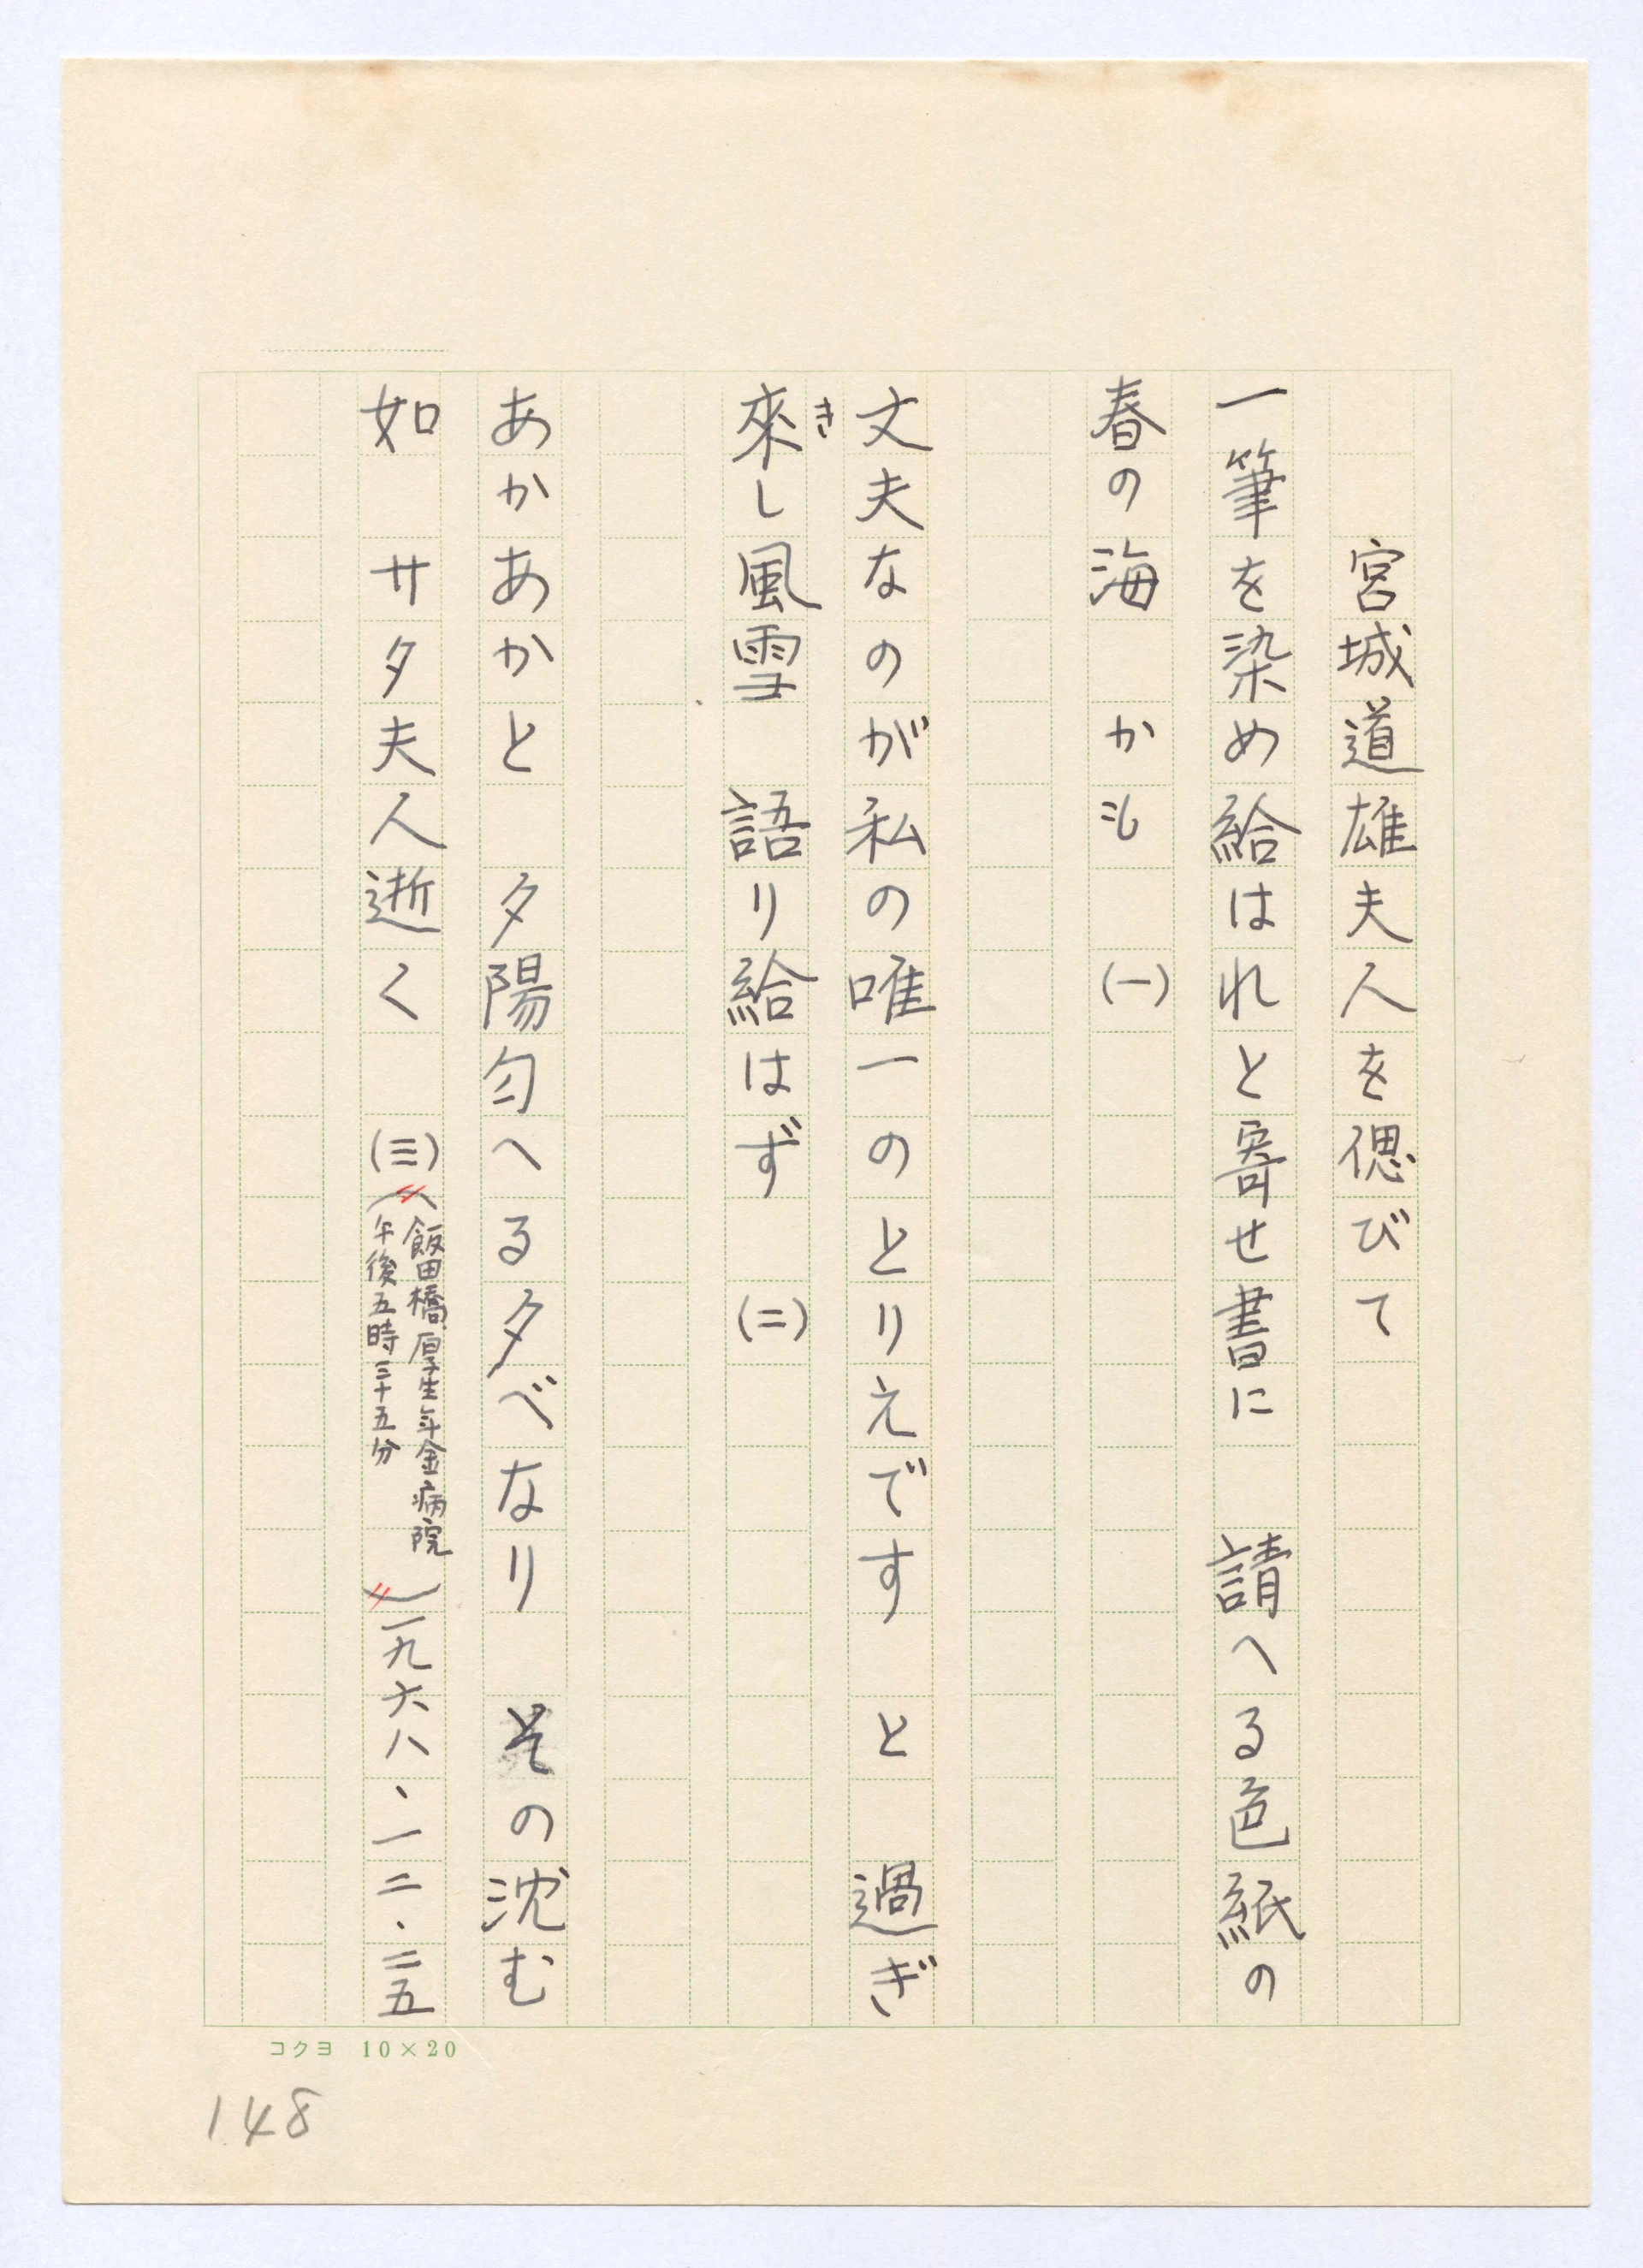 宮城道雄夫人を偲びて
一筆を染め給はれと寄せ書に　請へる色紙の
春の海　かも　(一)
丈夫なのが私の唯一のとりえです　と　過ぎ
來し風雪　語り給はず　(二)
き
あかあかと　夕陽匀へる夕べなり　その沈む
如　サタ夫人逝く　(三)
(飯田橋厚生年金病院
午後五時三十五分)
一九六八、一二.二五
コクヨ 10×20
148